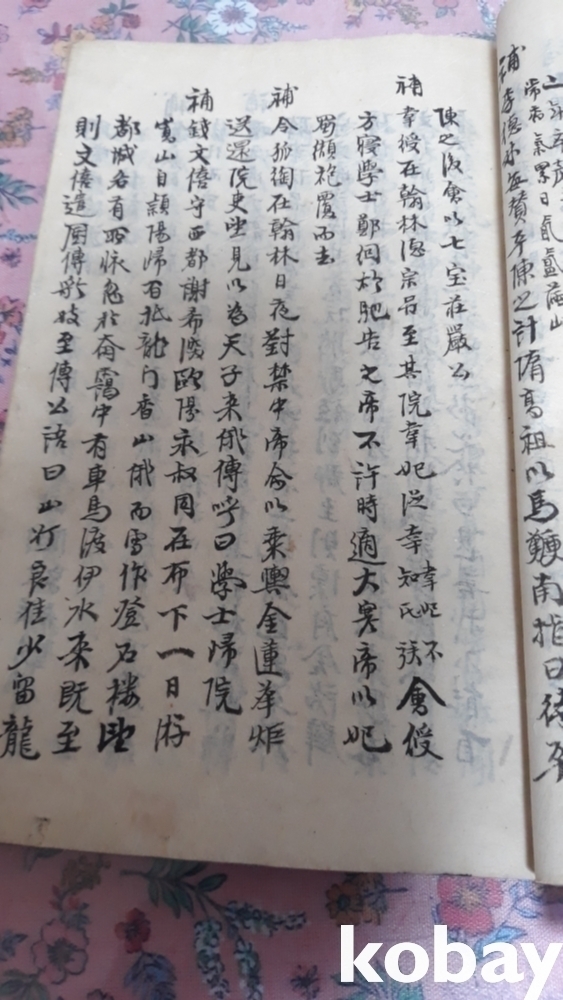 補李德林每贊平陳之計隋高祖以馬鞭南指曰待平
陳之後會以七宝莊嚴公
補韋授在翰林德宗嘗至其院韋妃從幸韋妃不知氏族會授
方寢學士鄭絪欲馳告之帝不許時適大寒帝以妃
蜀襭袍覆而去
補令狐綯在翰林日夜對禁中帝命以乘輿金蓮華炬
送還院吏望見以為天子来俄傳呼曰學士歸院
補錢文僖守西都謝希深歐陽永叔同在布下一日游
嵩山自潁陽歸百抵龍门香山俄而雪作登石樓望
都城各有所怀忽於靄中有車馬渡伊水来既至
則文僖遣厨傳歌妓至傳公語曰山行良佳少留龍
kobay